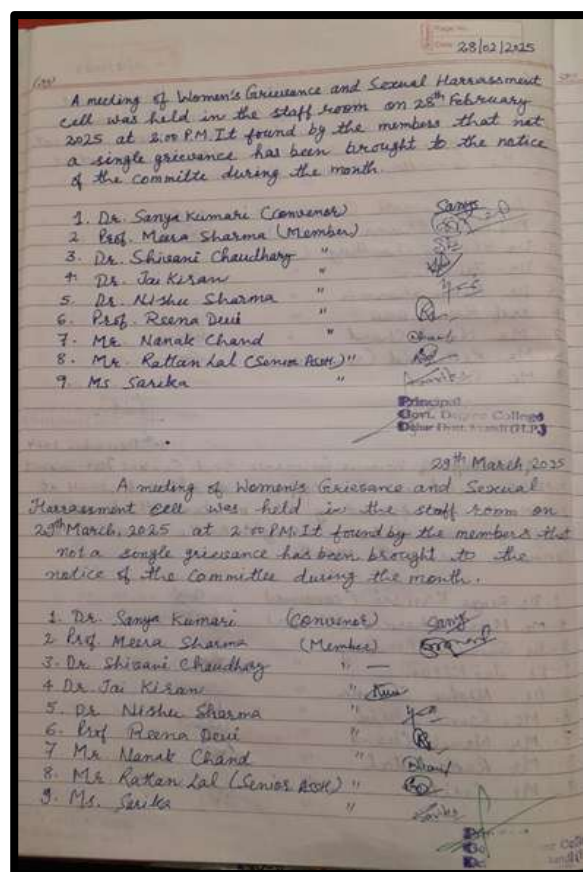 Page No.
Date 28/02/2025
A meeting of Women's Grievance and Sexual Harrassment
cell was held in the staff room on 28th February
2025 at 2:00 P.M. It found by the members that not
a single grievance has been brought to the notice
of the committe during the month.
1. Dr. Sanya Kumari (Convenor) Sanya
2 Prof. Meera Sharma (Member)
3. Dr. Shivani Chaudhary "
4. Dr. Jai Kiran "
5. Dr. Nishu Sharma "
6. Prof. Reena Devi "
7. Mr. Nanak Chand "
8. Mr. Rattan Lal (Senior Asstt.) "
9. Ms Sarika "
Principal
Govt. Degree College
29th March, 2025
A meeting of Women's Grievance and Sexual
Harrassment cell was held in the staff room on
29th March, 2025 at 2:00 P.M. It found by the members that
not a single grievance has been brought to the
notice of the Committee during the month.
1. Dr. Sanya Kumari (Convenor) Sanya
2 Prof. Meera Sharma (Member)
3. Dr. Shivani Chaudhary " —
4 Dr. Jai Kiran "
5. Dr Nishu Sharma "
6. Prof Reena Devi "
7 Mr Nanak Chand "
8. Mr Rattan Lal (Senior Asstt) "
9. Ms. Sarika "